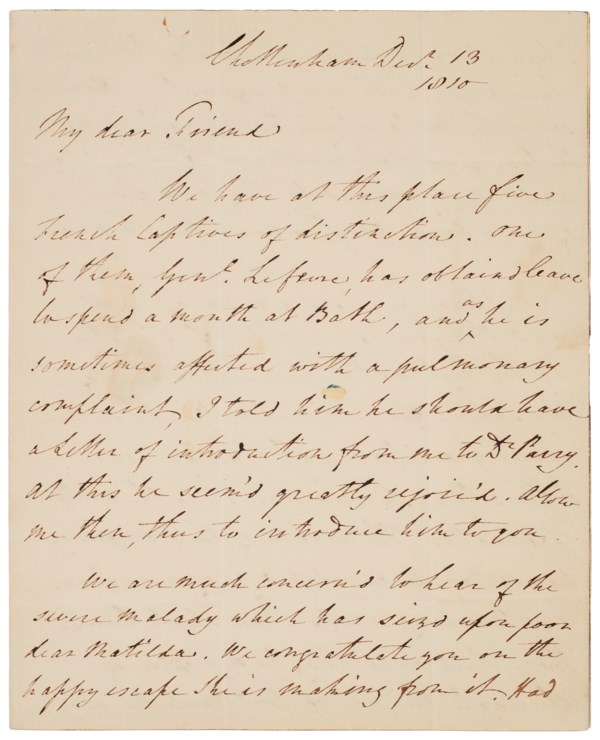 Cheltenham Decr. 13
1810
My dear Friend
We have at this place five
French Captives of distinction. One
of them, Genl. Lefevre, has obtaind leave
to spend a month at Bath, and as he is
sometimes affected with a pulmonary
complaint, I told him he should have
a Letter of introduction from me to Dr Parry.
At this he seem'd greatly rejoic'd. Allow
me then, thus to introduce him to you.
We are much concern'd to hear of the
severe malady which has seizd upon poor
dear Matilda. We congratulate you on the
happy escape she is making from it. Had